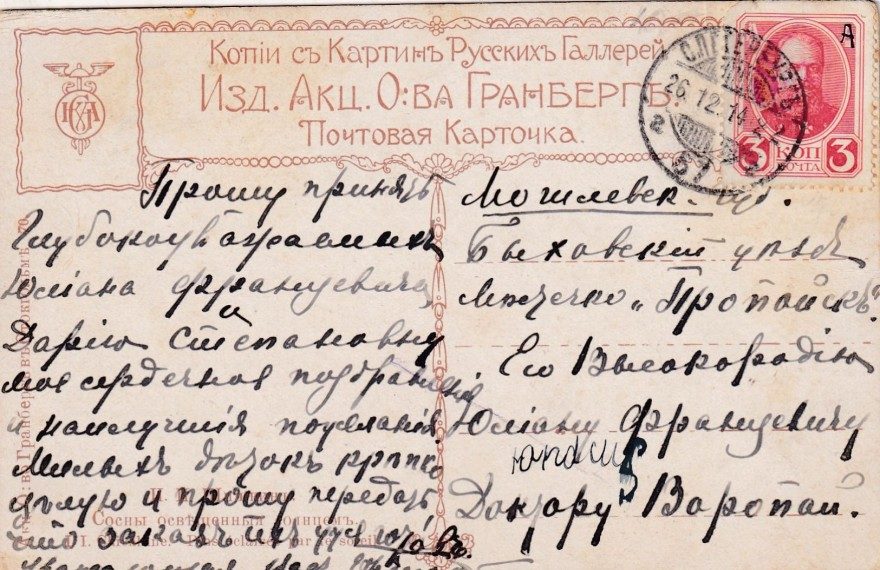 Копіи съ Картинъ Русскихъ Галлерей
Изд. Акц. О:ва Гранбергъ.
Почтовая Карточка.
С.ПЕТЕРБУРГЪ
26.12.14
57
А
3 КОП 3
ПОЧТА
Прошу принять
Глубокоуважаемыхъ
Юліана Францевича
и
Дарію Степановну
мое сердечное поздравленіе
и наилучшія пожеланія.
Милыхъ дѣтокъ крѣпко
цѣлую и прошу передать
что заказъ ихъ
Могилевск. губ.
Быховскій уѣздъ
Мѣстечко „Пропойскъ".
Его Высокородію
Юліану Францевичу
Доктору Воропай.
Сосны освѣщенныя солнцемъ.